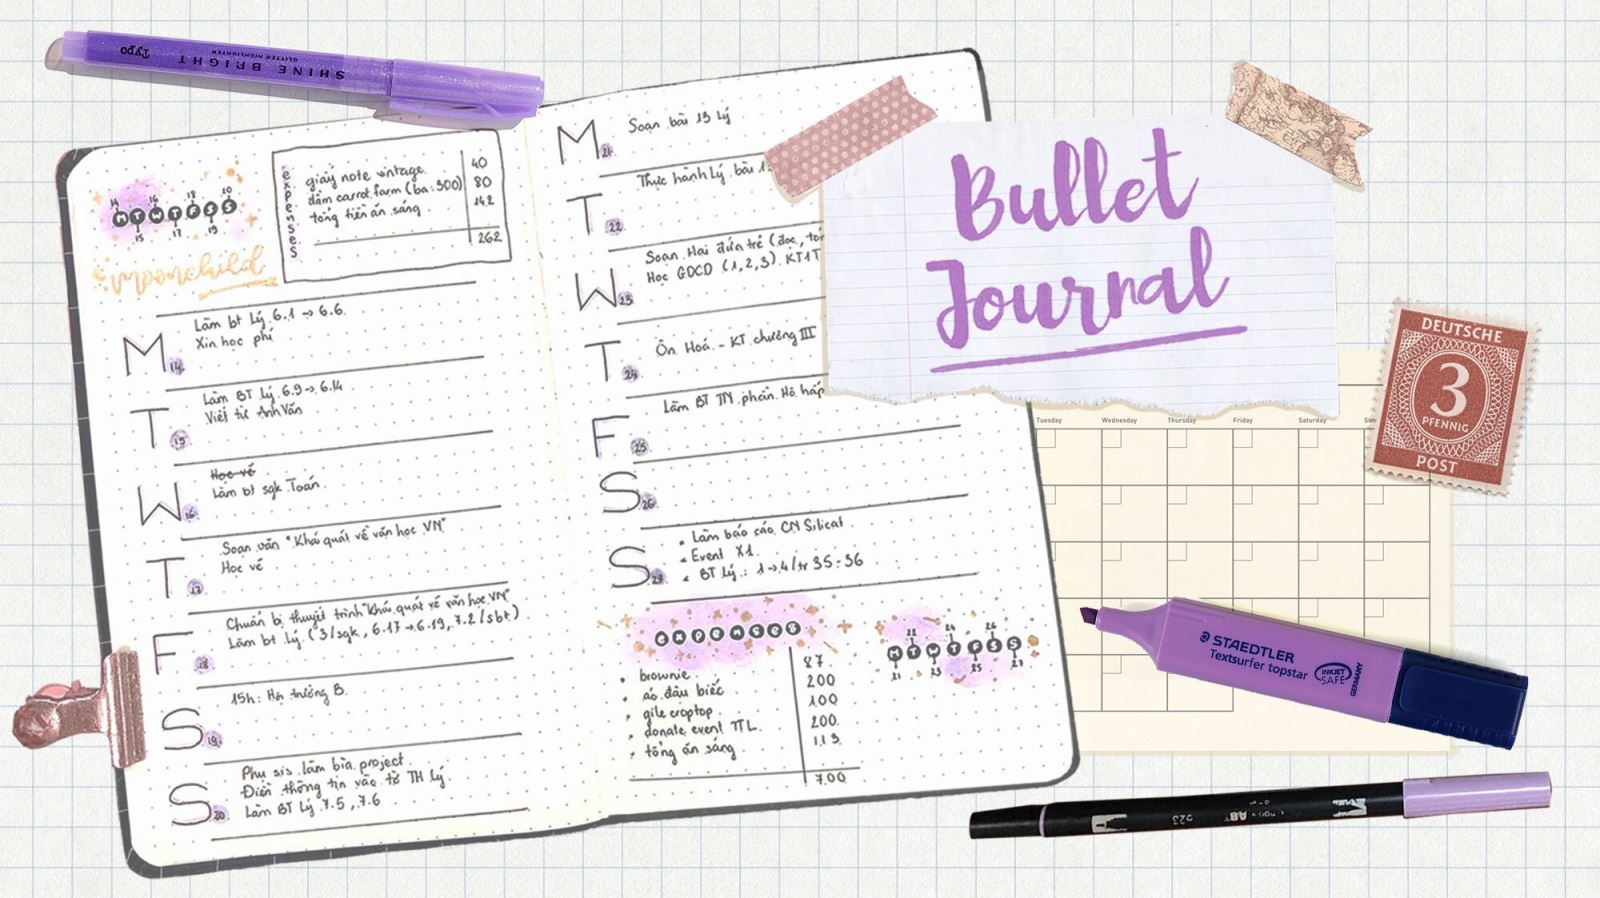 Typo
SHINE BRIGHT
GLITTER HIGHLIGHTER
14 16 18 20
M T W T F S S
15 17 19
moonchild
expenses
giấy note vintage 40
dầm carrot farm (ba: 500) 80
tổng tiền ăn sáng 142
262
M 14
Làm bt Lý 6.1 → 6.6
Xin học phí
T 15
Làm BT Lý 6.9 → 6.14
Viết từ Anh Văn
W 16
Học vẽ
Làm bt sgk Toán
T 17
Soạn văn "Khái quát về văn học VN"
Học vẽ
F 18
Chuẩn bị thuyết trình "Khái quát về văn học VN"
Làm bt Lý (3/sgk, 6.17 → 6.19, 7.2/sbt)
S 19
15h: Hội trường B
S 20
Phụ sis làm bìa project
Điền thông tin vào tờ TH Lý
Làm BT Lý 7.5, 7.6
M 21
Soạn bài 13 Lý
T 22
Thực hành Lý bài 1
W 23
Soạn Hai đứa trẻ (đọc, tó
Học GDCD (1,2,3) KT1T
T 24
Ôn Hoá - KT chương III
F 25
Làm BT TN phần Hô hấp
S 26
S
• Làm báo cáo CN Silicat
• Event X1
• BT Lý: 1→4/tr 35-36
expenses
• brownie 87
• áo đầu biếc 200
• gile croptop 100
• donate event TTL 200
• tổng ăn sáng 113
700
22 24 26
M T W T F S S
21 23 25 27
Bullet
Journal
DEUTSCHE
3
PFENNIG
POST
Tuesday Wednesday Thursday Friday Saturday Sun
STAEDTLER
Textsurfer topstar
INKJET
SAFE
GERMANY
ABT